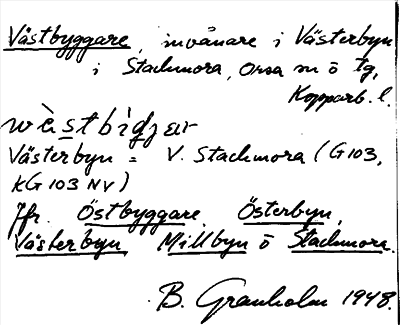 Västbyggare, invånare i Västerbyn
i Stackmora, Orsa sn o tg,
Kopparb. l.
Västerbyn = V. Stackmora (G103,
kG103 NV)
Jfr. Östbyggare, Österbyn,
Västerbyn, Millbyn o Stackmora.
B. Granholm 1948.